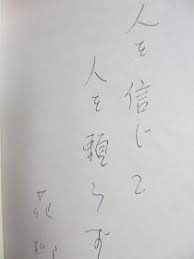 人を信じて
人を頼らず